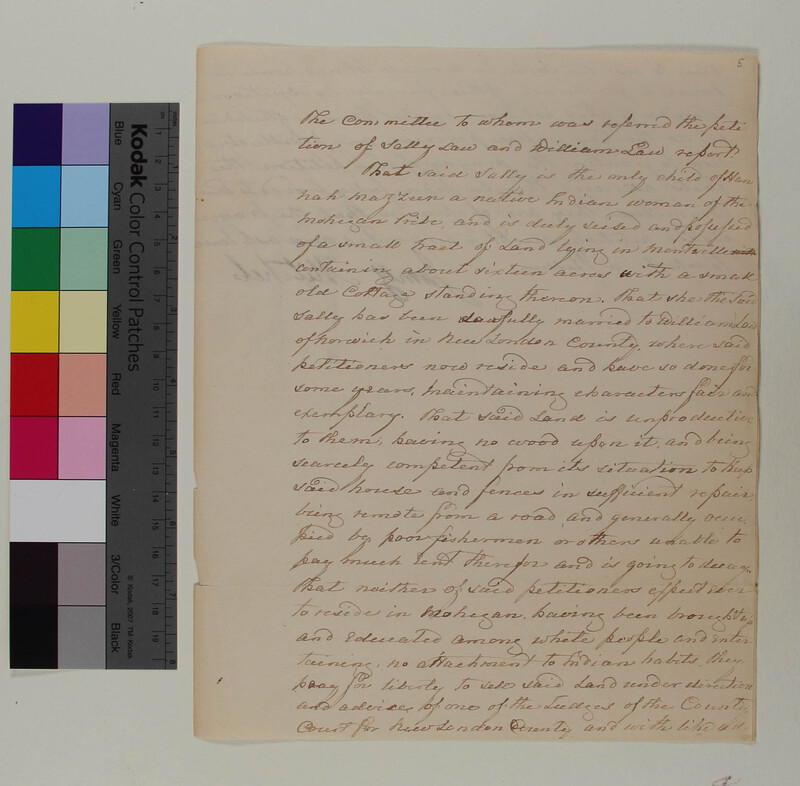 5
The Committee to whom was referred the peti
tion of Sally Law and William Law report
That said Sally is the only child of Han
nah Mazzeen a native Indian woman of the
Mohegan Tribe, and is duly seised and possessed
of a small tract of Land lying in Montville
containing about sixteen acres with a small
old Cottage standing thereon. That she the said
Sally has been lawfully married to William Law
of Norwich in New London County, where said
petitioners now reside and have so done for
some years, maintaining characters fair and
exemplary. That said Land is unproductive
to them, having no wood upon it, and being
scarcely competent from its situation to keep
said house and fences in sufficient repair
being remote from a road and generally occu
pied by poor fishermen or others unable to
pay much rent therefor and is going to decay.
That neither of said petitioners expect ever
to reside in Mohegan, having been brought up
and Educated among white people and enter
taining no attachment to Indian habits, they
pray for liberty to sell said Land under direction
and advise of one of the Judges of the County
Court for New London County and with like ad
Kodak
Color Control Patches
Blue
Cyan
Green
Yellow
Red
Magenta
White
3/Color
Black
© Kodak, 2007 TM: Kodak